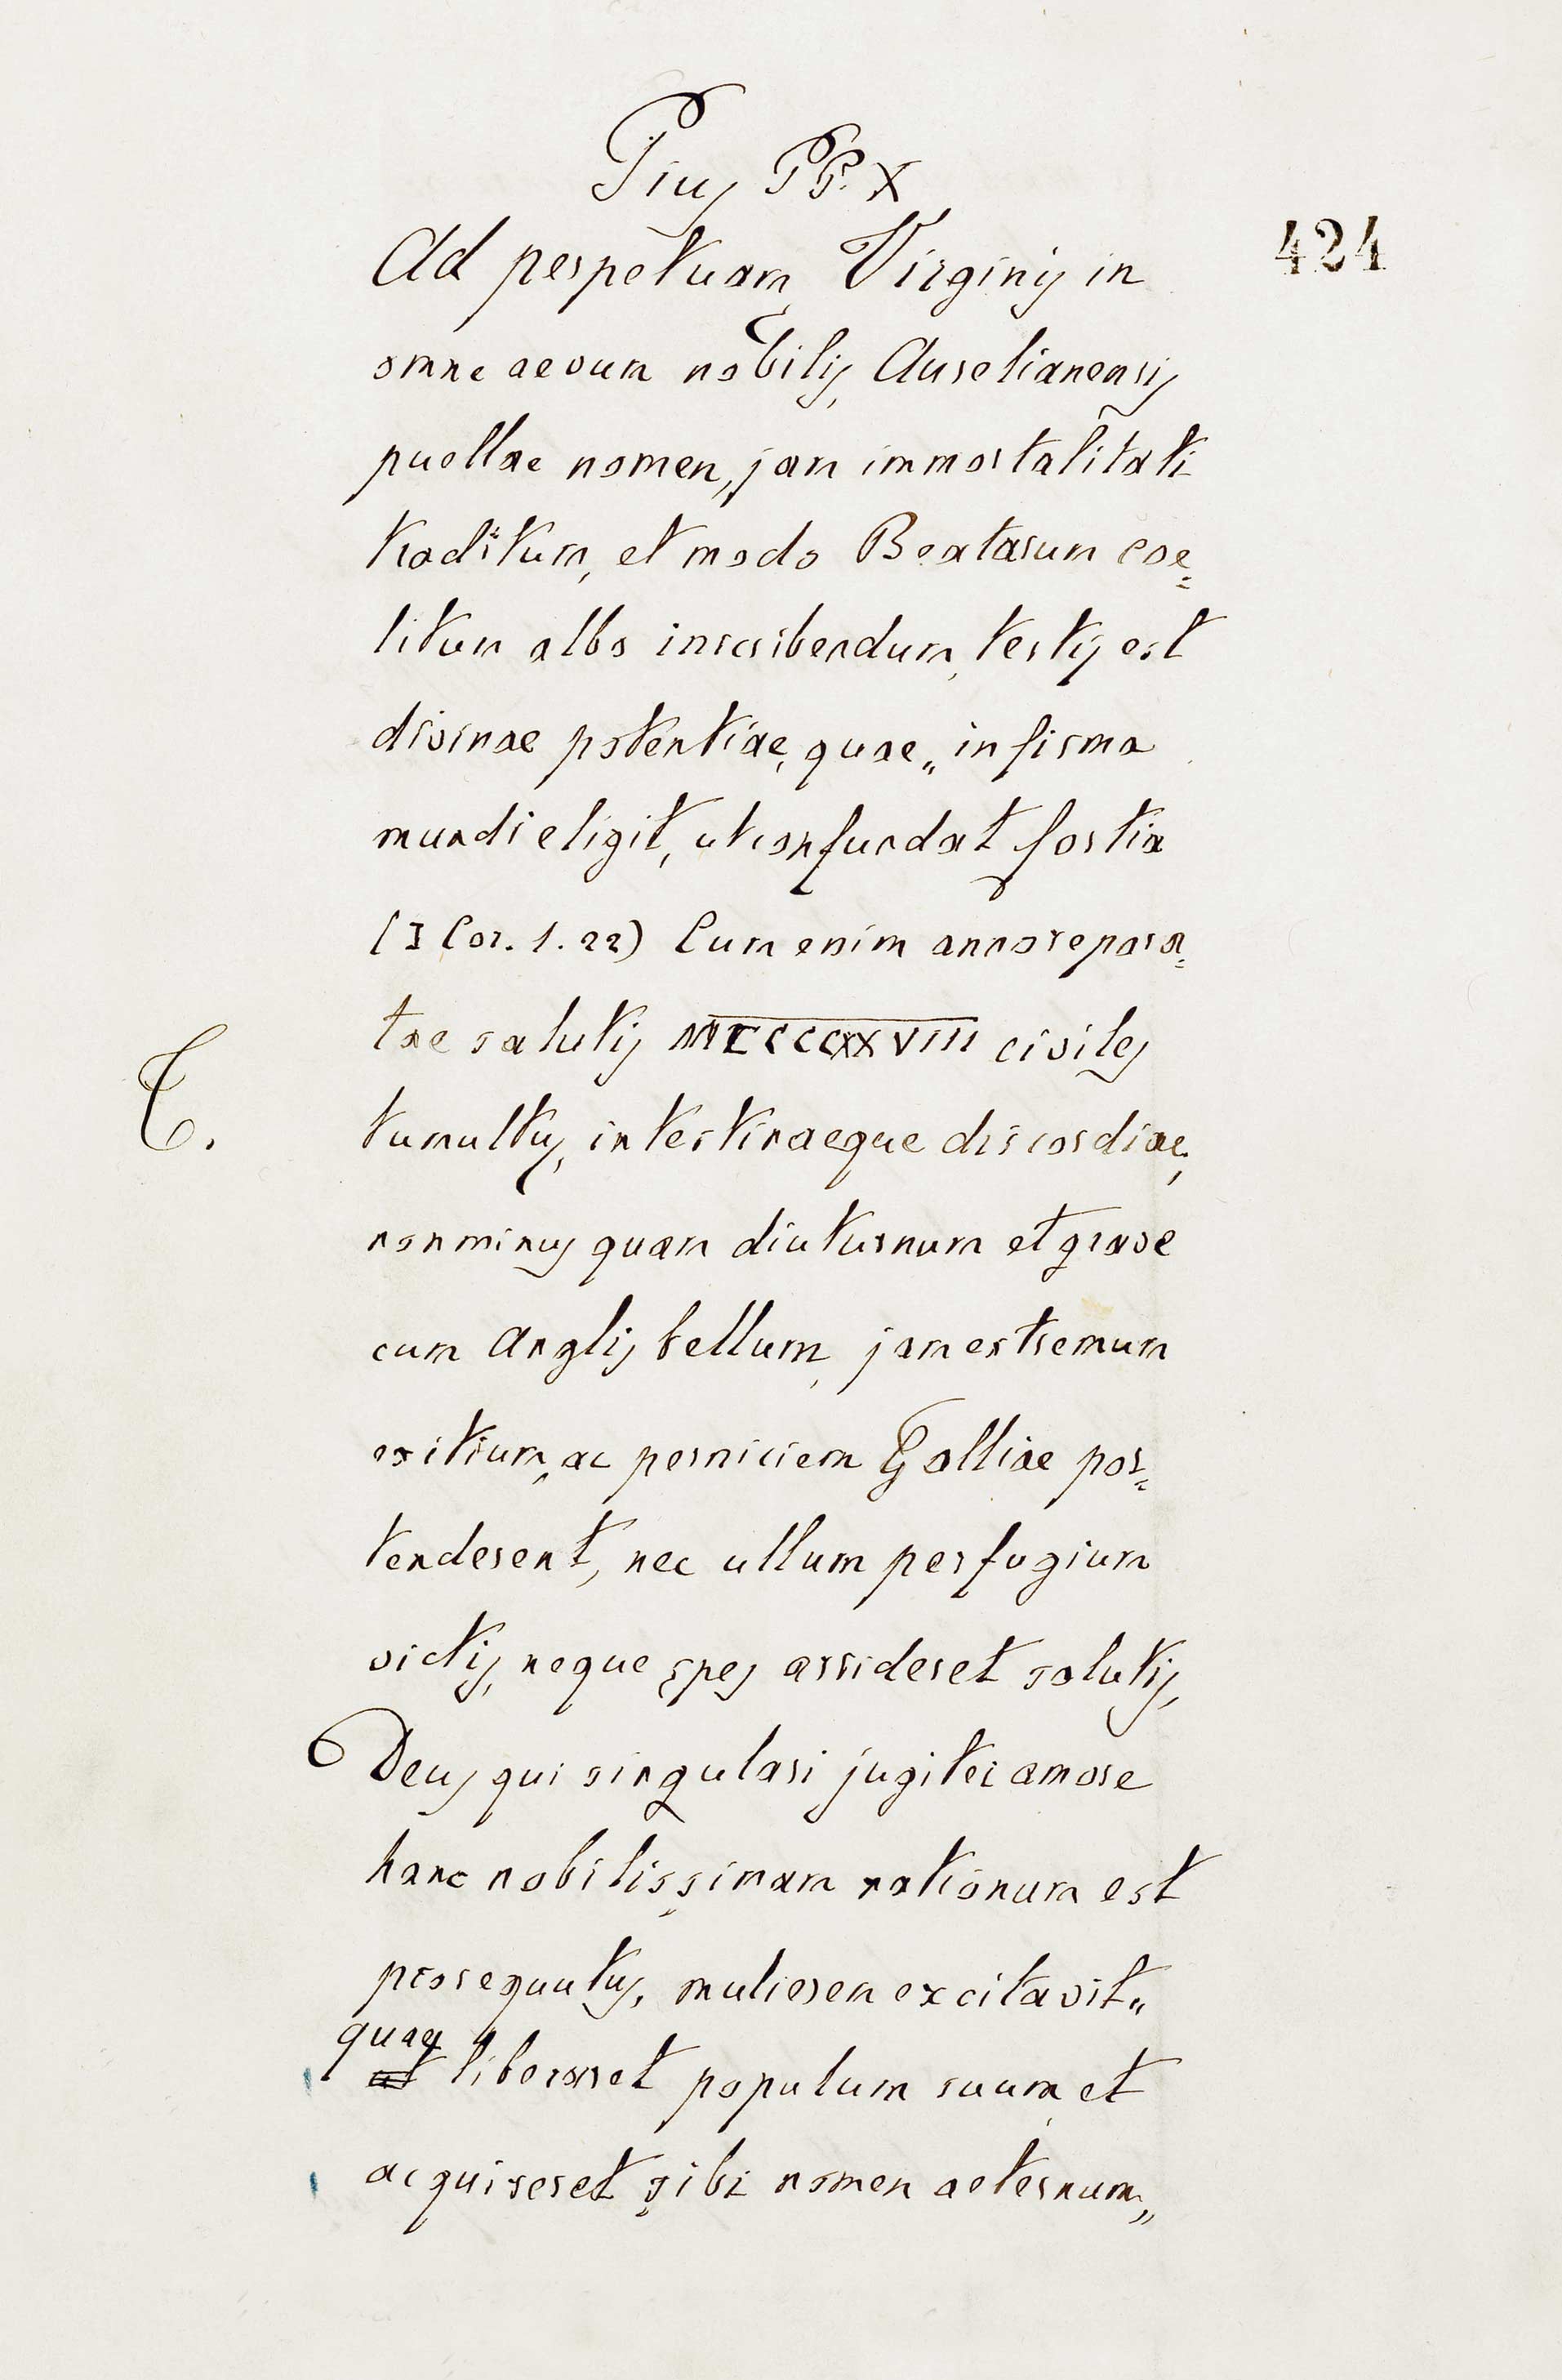 Pius PP. X
424
Ad perpetuam, Virginis in
omne aevum nobilis, Aurelianensis
puellae nomen, jam immortalitati
traditum, et modo Beatarum coe=
litum albo inscribendum, testis est
divinae potentiae, quae „ infirma
mundi eligit, ut confundat fortia
(I Cor. 1. 22) Cum enim anno repara=
tae salutis MCCCCXXVIII civiles
T.
tumultus, intestinaeque discordiae,
non minus quam diuturnum et grave
cum Anglis bellum, jam extremum
exitium, ac perniciem Galliae por=
tenderent, nec ullum perfugium
victis, neque spes arrideret salutis,
Deus qui singulari jugiter amore
hanc nobilissimam nationum est
prosequutus, mulierem excitavit „
quae
ut liberaret populum suum, et
acquireret sibi nomen aeternum, „